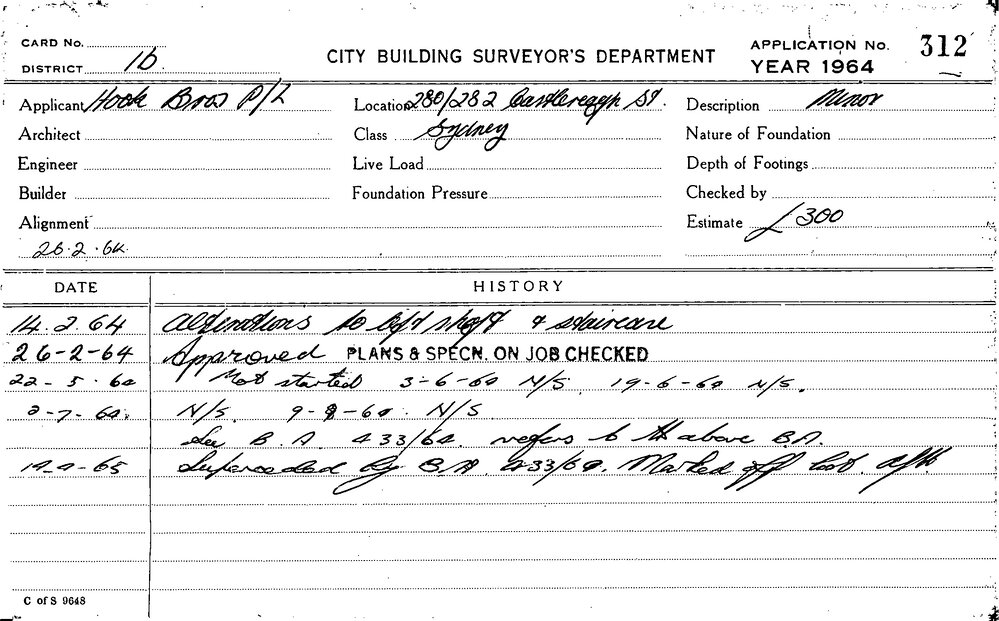 CARD No.
DISTRICT 1b.
CITY BUILDING SURVEYOR'S DEPARTMENT
APPLICATION No. 312
YEAR 1964
Applicant Hook Bros P/L
Location 280/282 Castlereagh St.
Description Minor
Architect
Class Sydney
Nature of Foundation
Engineer
Live Load
Depth of Footings
Builder
Foundation Pressure
Checked by
Alignment
Estimate £300
26.2.64
DATE
HISTORY
14.2.64 Alterations to lift shaft & staircase
26-2-64 Approved PLANS & SPECN. ON JOB CHECKED
22-5-64 Not started 3-6-64 N/S. 19-6-64 N/S.
2-7-64. N/S. 9-8-64. N/S.
See B.A 433/64. refers to the above B.A.
-65 Superceeded by B.A. 433/64. Marked off
C of S 9648